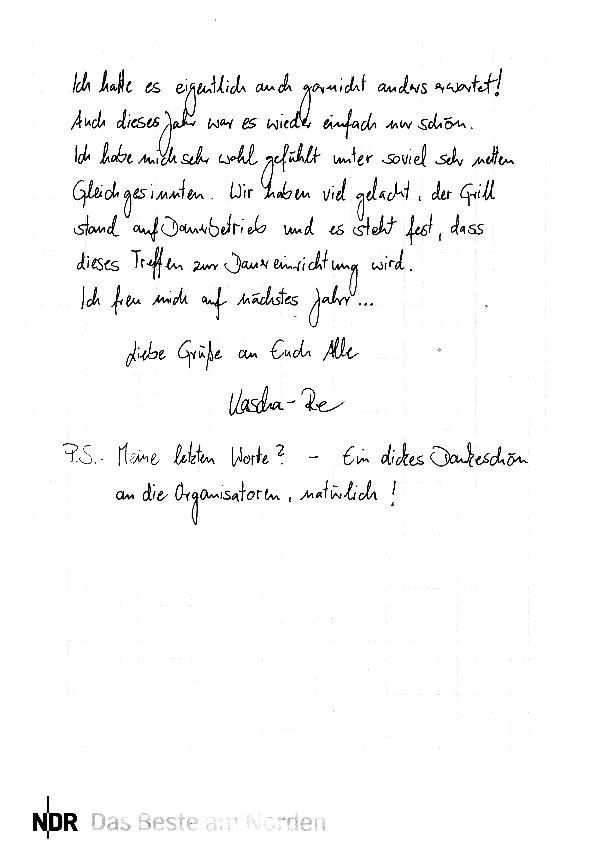 Ich hatte es eigentlich auch garnicht anders erwartet!
Auch dieses Jahr war es wieder einfach nur schön.
Ich habe mich sehr wohl gefühlt unter soviel sehr netten
Gleichgesinnten. Wir haben viel gelacht, der Grill
stand auf Dauerbetrieb und es steht fest, dass
dieses Treffen zur Dauereinrichtung wird.
Ich freu mich auf nächstes Jahr...
Liebe Grüße an Euch Alle
Kascha-Re
P.S. Meine letzten Worte? - Ein dickes Dankeschön
an die Organisatoren, natürlich!
NDR Das Beste am Norden